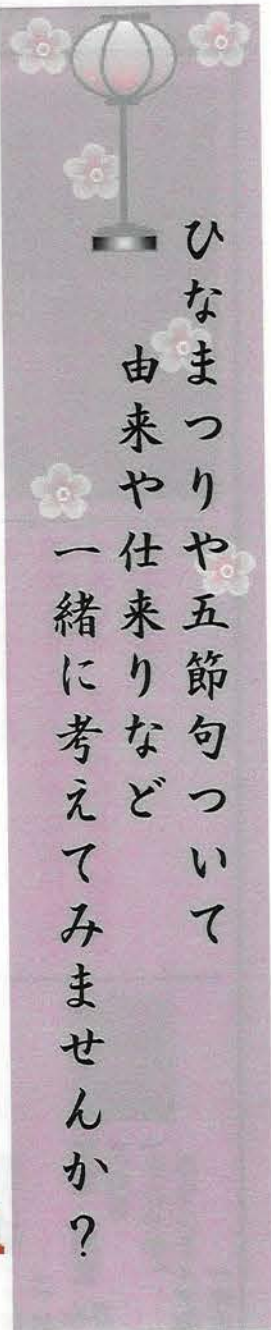 ひなまつりや五節句ついて
由来や仕来りなど
一緒に考えてみませんか？